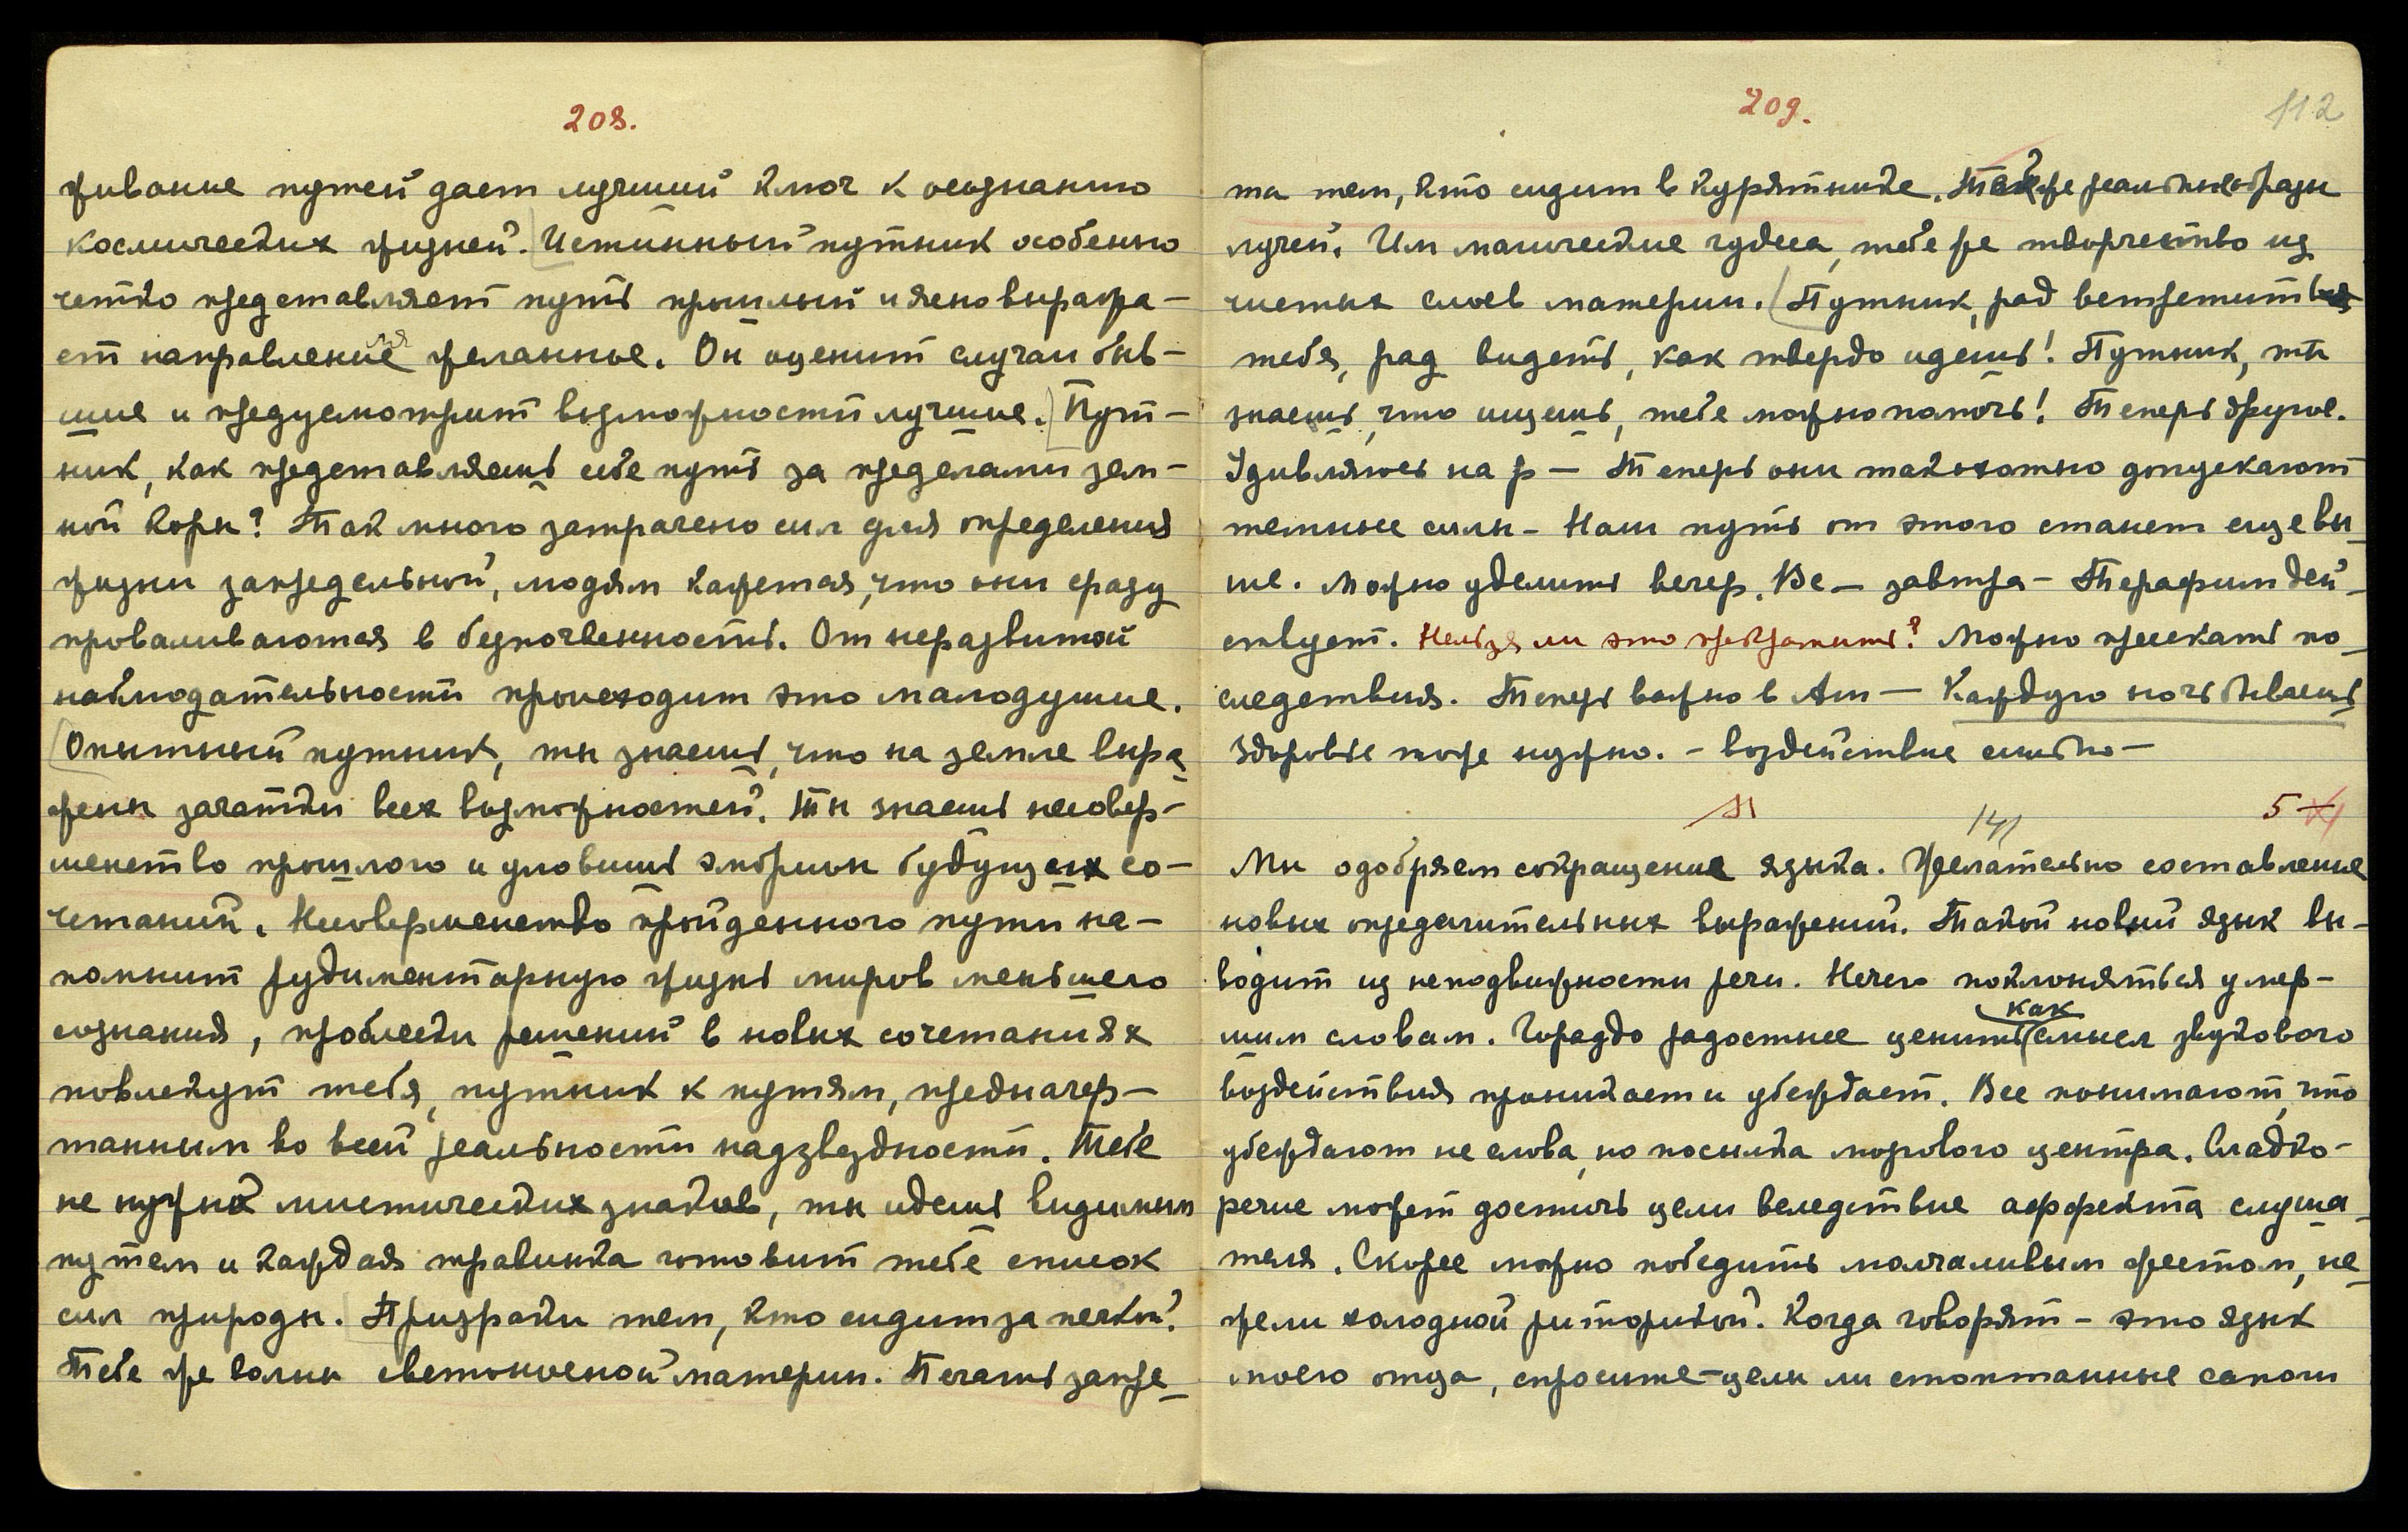 208.
живание путей дает лучший ключ к осознанию
космических жизней. Истинный путник особенно
четко представляет путь прошлый и ясно выража-
ет направление желанное. Он оценит случаи быв-
шие и предусмотрит возможности лучшие. Пут-
ник, как представляешь себе путь за пределами зем-
ной коры? Так много затрачено сил для определения
жизни запредельной, людям кажется, что они сразу
проваливаются в безпочвенность. От неразвитой
наблюдательности происходит это малодушие.
Опытный путник, ты знаешь, что на земле выра-
жены зачатки всех возможностей. Ты знаешь несовер-
шенство прошлого и уловишь эмбрион будущих со-
четаний. Несовершенство пройденного пути на-
помнит рудиментарную жизнь миров меньшего
сознания, проблески решений в новых сочетаниях
повлекут тебя, путник к путям, предначер-
танным во всей реальности надзвездности. Тебе
не нужно мистических знаков, ты идешь видимым
путем и каждая травинка готовит тебе список
сил природы. Призраки тем, кто сидит за печкой.
Тебе же волны светоносной материи. Печать запре-
209.
112
та тем, кто сидит в курятнике. Тебе же реальные образы
лучей. Им магические чудеса, тебе же творчество из
чистых слоев материи. Путник, рад встретить
тебя, рад видеть, как твердо идешь! Путник, ты
знаешь, что ищешь, тебе можно помочь! Теперь другое.
Удивляюсь на р — Теперь они так охотно допускают
темные силы - Наш путь от этого станет еще вы-
ше. Можно уделить вечер. Ве — завтра - Терафим дей-
ствует. Нельзя ли это прекратить? Можно пресекать по-
следствия. Теперь важно в Ам — Каждую ночь бываешь
Здоровье тоже нужно. - воздействие сильно —
141
5
Мы одобряем сокращение языка. Желательно составление
новых определительных выражений. Такой новый язык вы-
водит из неподвижности речи. Нечего поклоняться умер-
шим словам. Гораздо радостнее ценить как смысл звукового
воздействия проникает и убеждает. Все понимают, что
убеждают не слова, но посылка мозгового центра. Сладко-
речие может достичь цели вследствие аффекта слуша-
теля. Скорее можно победить молчаливым жестом, не-
жели холодной риторикой. Когда говорят - это язык
моего отца, спросите - целы ли стоптанные сапоги